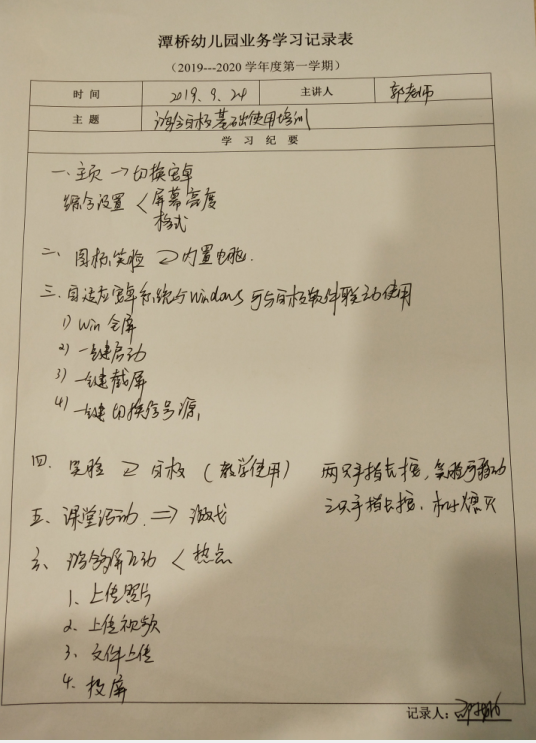 潭桥幼儿园业务学习记录表
（2019---2020 学年度第一学期）
时 间 2019.9.24 主讲人 郭老师
主 题 白板基础使用培训
学 习 纪 要
一、主页 → 切换安卓
综合设置 < 屏幕亮度
格式
二、图标笑脸 内置电脑.
三、自适应安卓系统与Windows 可与白板软件联动使用
1) Win 全屏
2) 一键启动
3) 一键截屏
4) 一键切换信号源,
四. 笑脸 白板 (教学使用) 两只手指长按,笑脸可移动
三只手指长按,
五、课堂活动. ⇒ 游戏
六、屏互动 < 热点
1、上传照片
2、上传视频
3、文件上传
4、投屏
记录人: